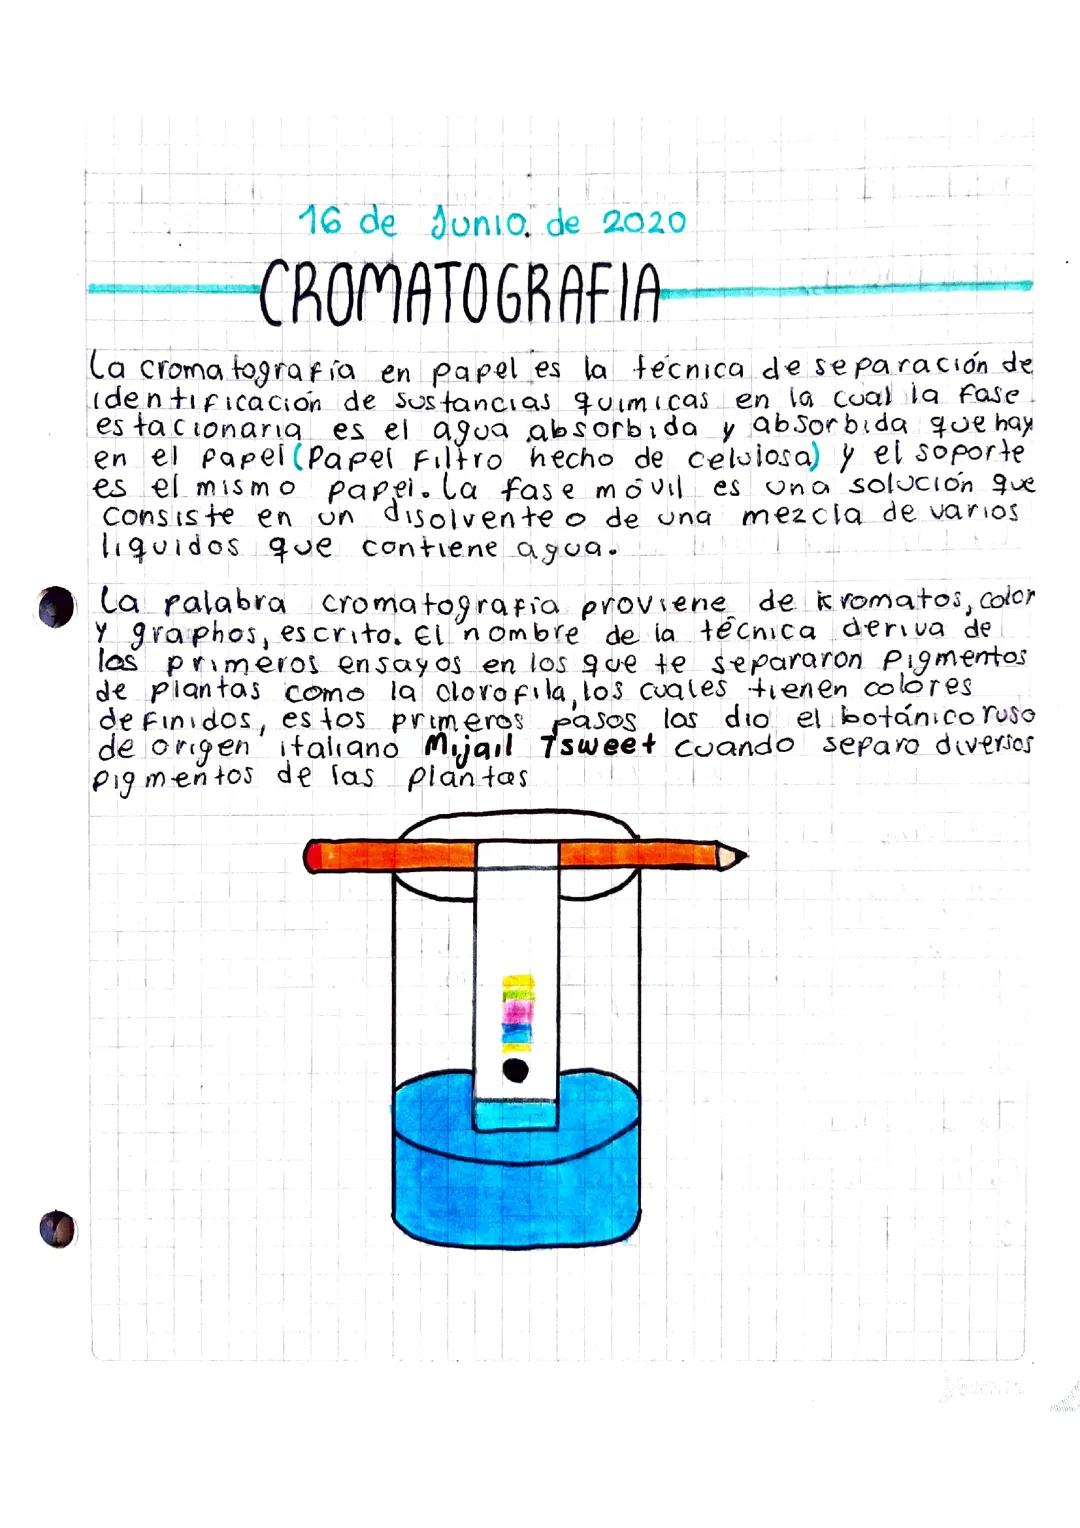 16 de Junio. de 2020
CROMATOGRAFIA
La cromatografía en papel es la técnica de separación de
identificación de sustancias quimicas en la cual la fase
estacionaria es el agua absorbida y absorbida que hay
en el papel (Papel Filtro hecho de celulosa) y el soporte
es el mismo papel. La fase móvil es una solución que
consiste en un disolvente o de una mezcla de varios
liquidos que contiene agua.
La palabra cromatografía proviene de kromatos, color
y graphos, escrito. El nombre de la técnica deriva de
los primeros ensayos en los que te separaron Pigmentos
de plantas como la clorofila, los cuales tienen colores
definidos, estos primeros pasos los dio el botánico ruso
de origen italiano Mijail Tsweet cuando separo diversos
Pigmentos de las plantas